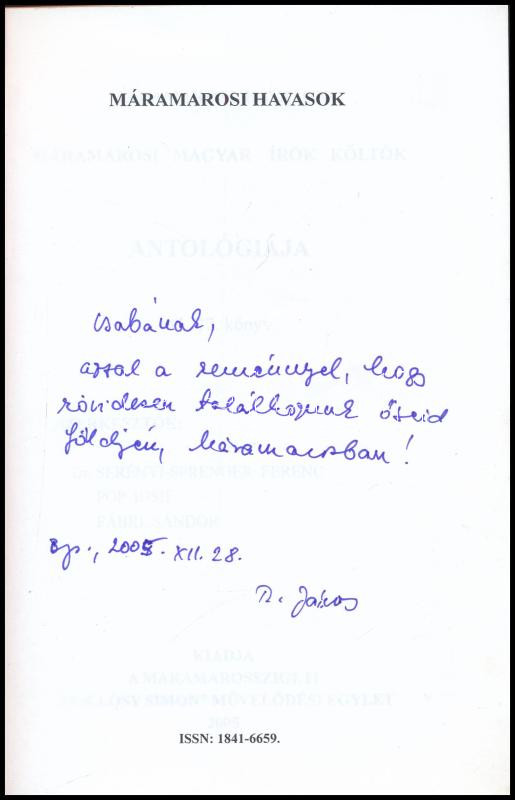 MÁRAMAROSI HAVASOK
MÁRAMAROSI MAGYAR ÍRÓK KÖLTŐK
ANTOLÓGIÁJA
könyv
Csabának,
azzal a reménnyel, hogy
rövidesen találkozunk őseid
földjén, Máramarosban!
Dr. SERÉNYI-SPRENGER FERENC
POP IOSIF
FÁBRI SÁNDOR
Bp., 2005. XII. 28.
D. János
KIADJA
A MÁRAMAROSSZIGETI
SIMON" MŰVELŐDÉSI EGYLET
2005
ISSN: 1841-6659.